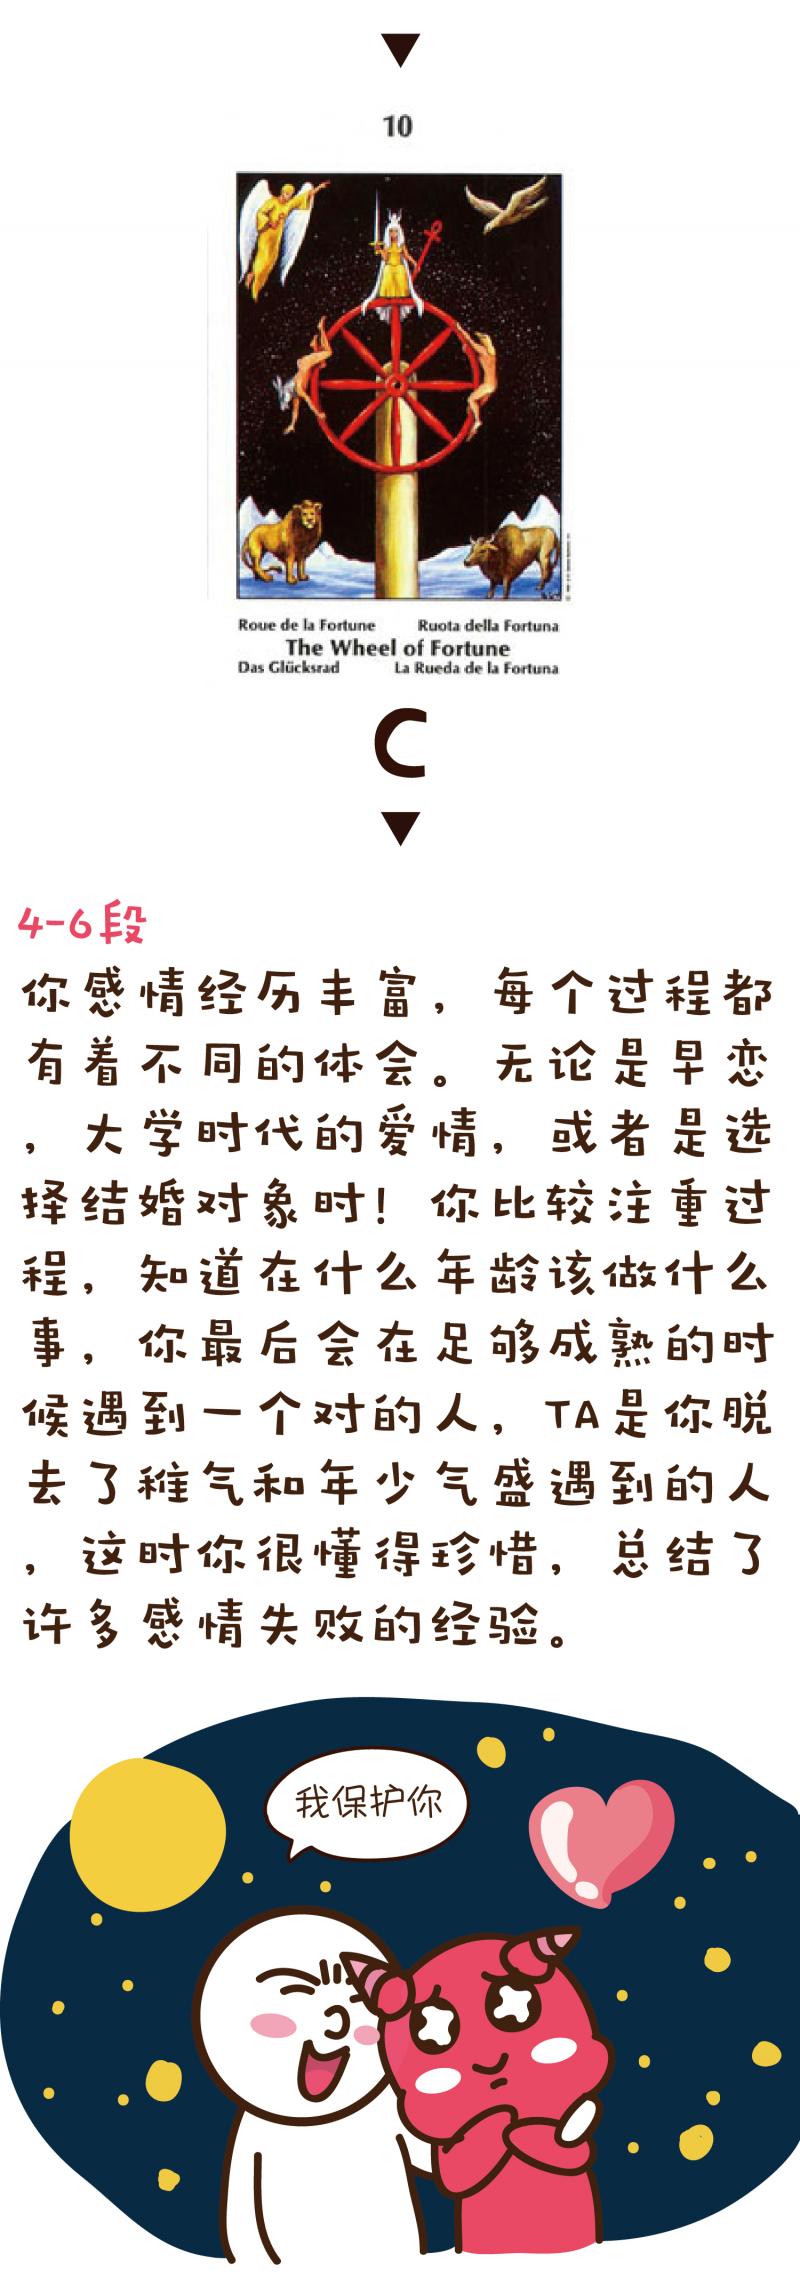 10
Roue de la Fortune Ruota della Fortuna
The Wheel of Fortune
Das Glücksrad La Rueda de la Fortuna
C
4-6段
你感情经历丰富，每个过程都
有着不同的体会。无论是早恋
，大学时代的爱情，或者是选
择结婚对象时！你比较注重过
程，知道在什么年龄该做什么
事，你最后会在足够成熟的时
候遇到一个对的人，TA是你脱
去了稚气和年少气盛遇到的人
，这时你很懂得珍惜，总结了
许多感情失败的经验。
我保护你